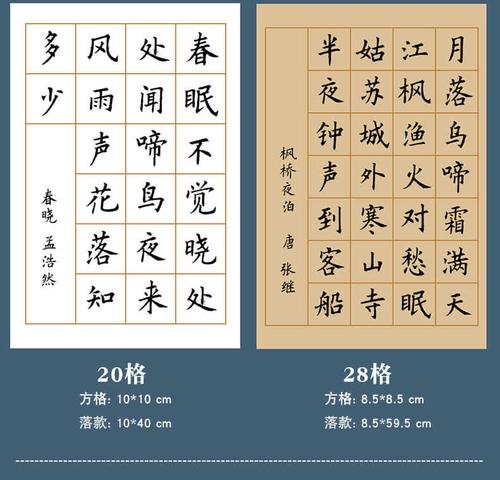 春眠不觉晓处
处闻啼鸟夜来
风雨声花落知
多少
春晓 孟浩然
月落乌啼霜满天
江枫渔火对愁眠
姑苏城外寒山寺
半夜钟声到客船
枫桥夜泊 唐 张继
20格
方格: 10*10 cm
落款: 10*40 cm
28格
方格: 8.5*8.5 cm
落款: 8.5*59.5 cm